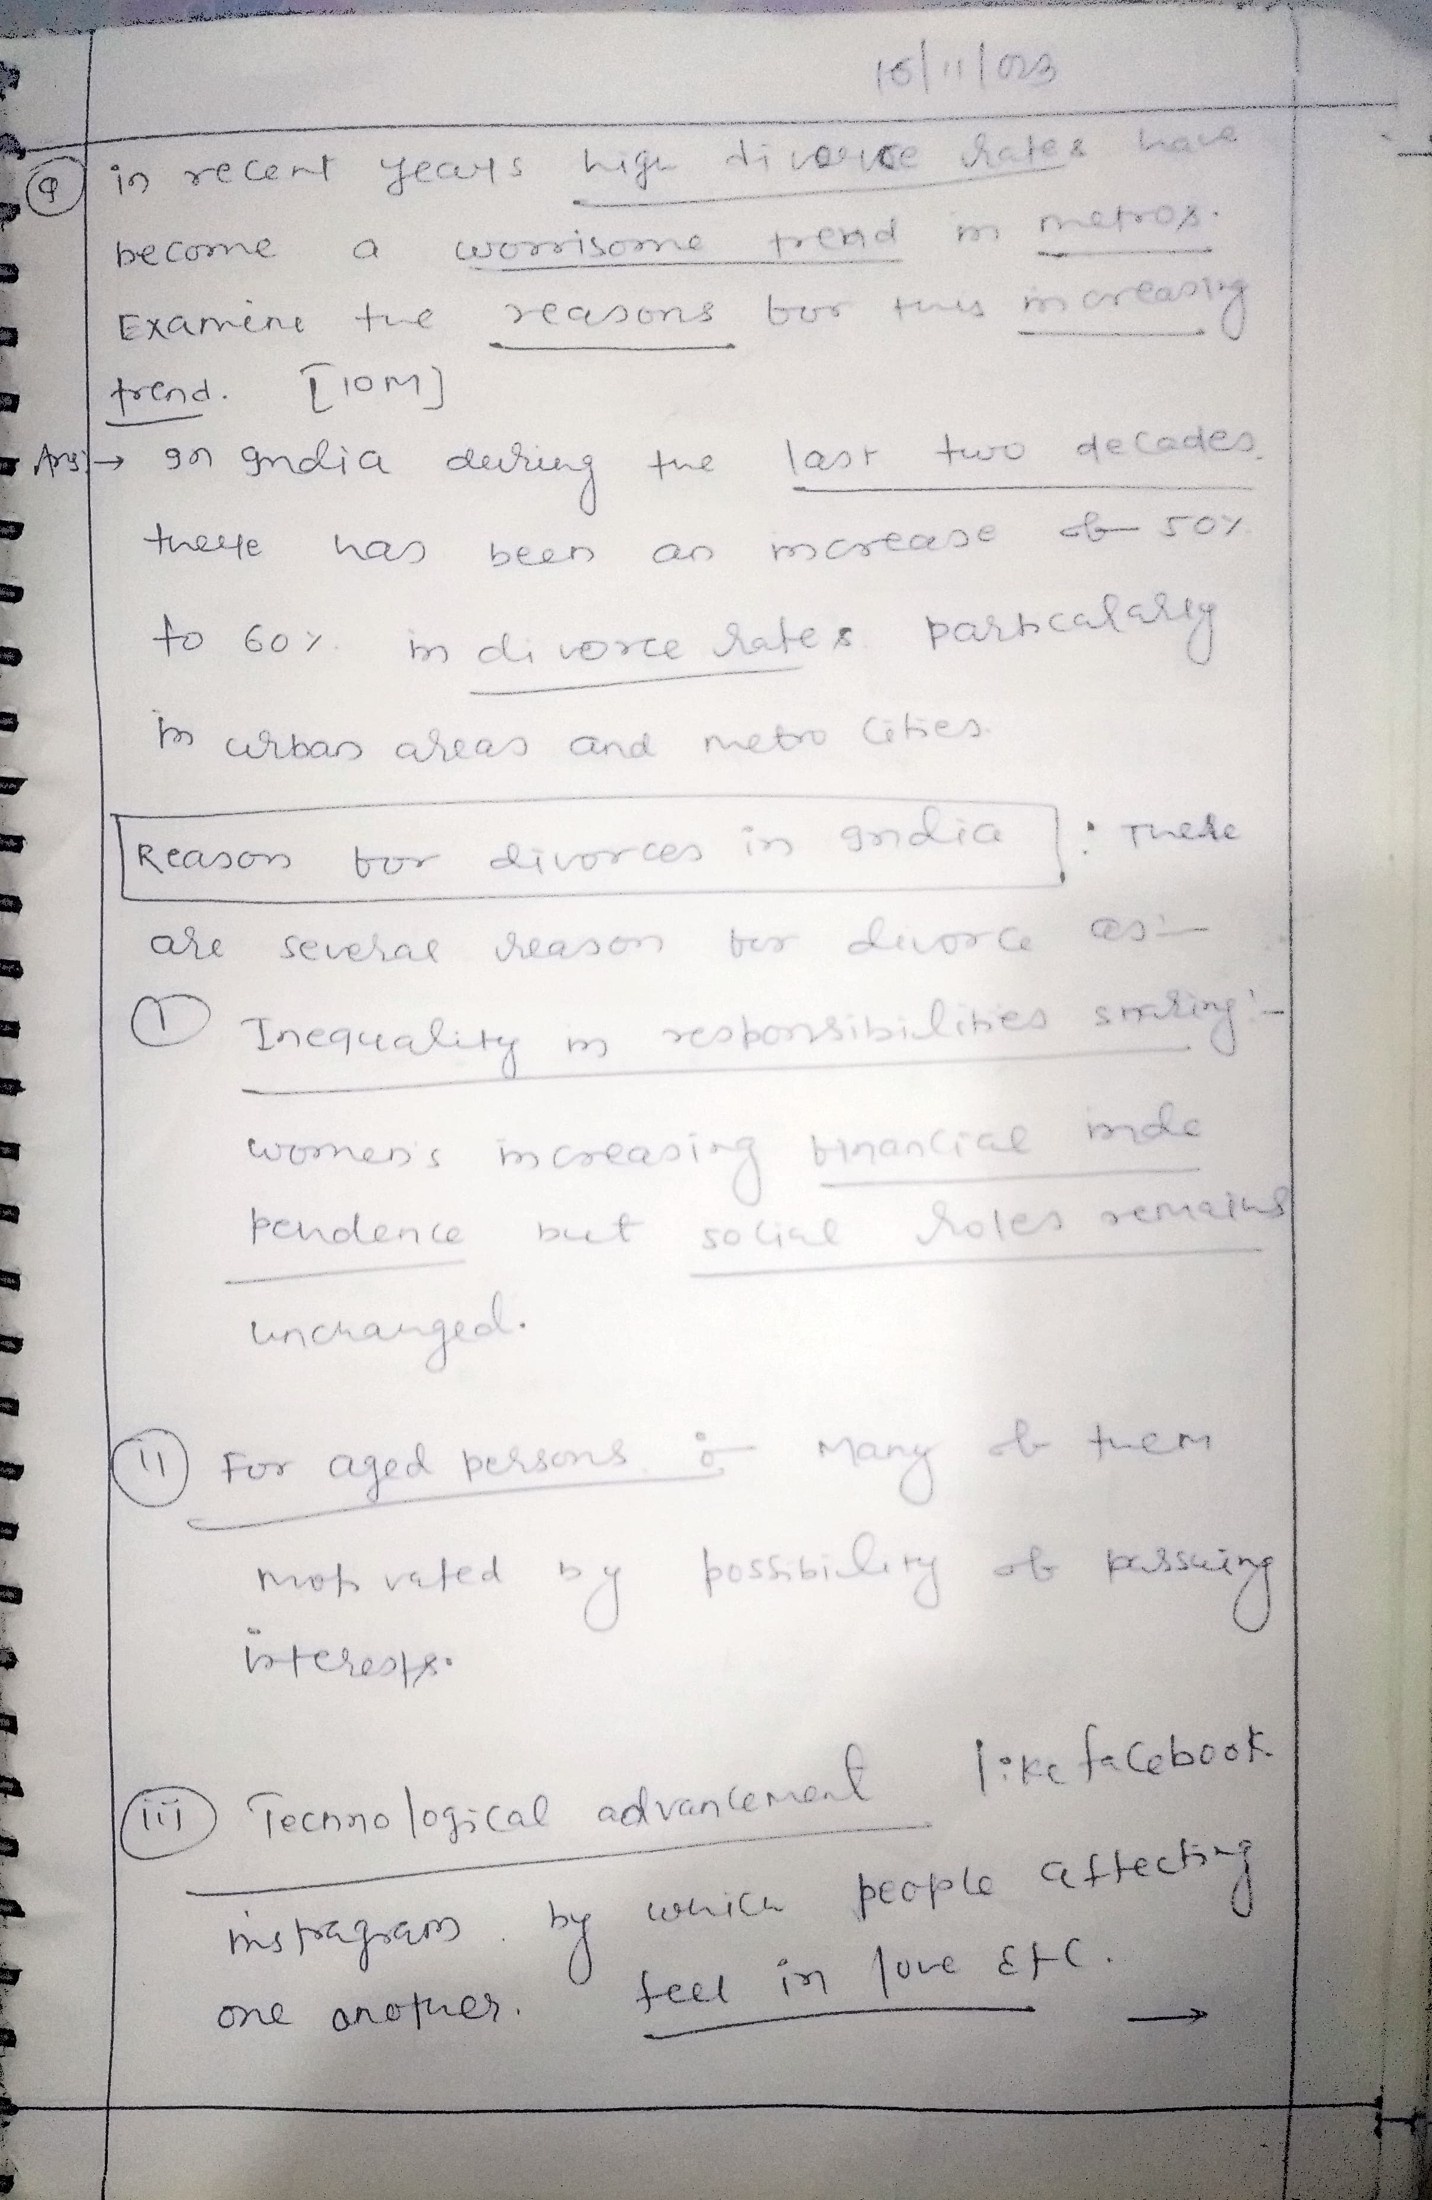 15/11/023
Q in recent years high divorce rates have
become a worrisome trend in metros.
Examine the reasons for this increasing
trend. [10M]
Ans:→ In India during the last two decades
there has been an increase of 50%
to 60% in divorce rates particalarly
in urban areas and metro cities.
Reason for divorces in India : There
are several reason for divorce as:-
(I) Inequality in responsibilities sharing:-
women's increasing financial inde
pendence but social roles remains
unchanged.
(ii) For aged persons :- Many of them
motivated by possibility of pursuing
interests.
(iii) Technological advancement like facebook
instragram by which people affecting
one another. feel in love Etc. →